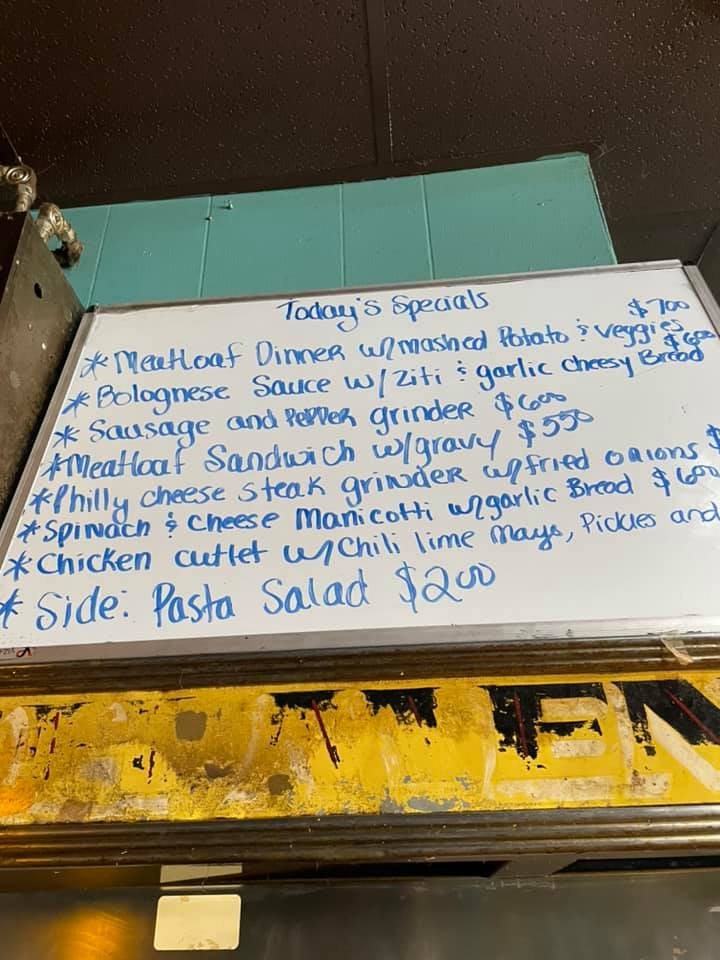 Today's Specials
* Meatloaf Dinner w/mashed Potato & veggies $700
* Bolognese Sauce w/ziti & garlic cheesy Bread $600
* Sausage and Pepper grinder $600
* Meatloaf Sandwich w/gravy $550
* Philly cheese steak grinder w/fried onions $
* Spinach & Cheese Manicotti w/garlic Bread $600
* Chicken cutlet w/Chili lime mayo, Pickles and
* Side: Pasta Salad $200